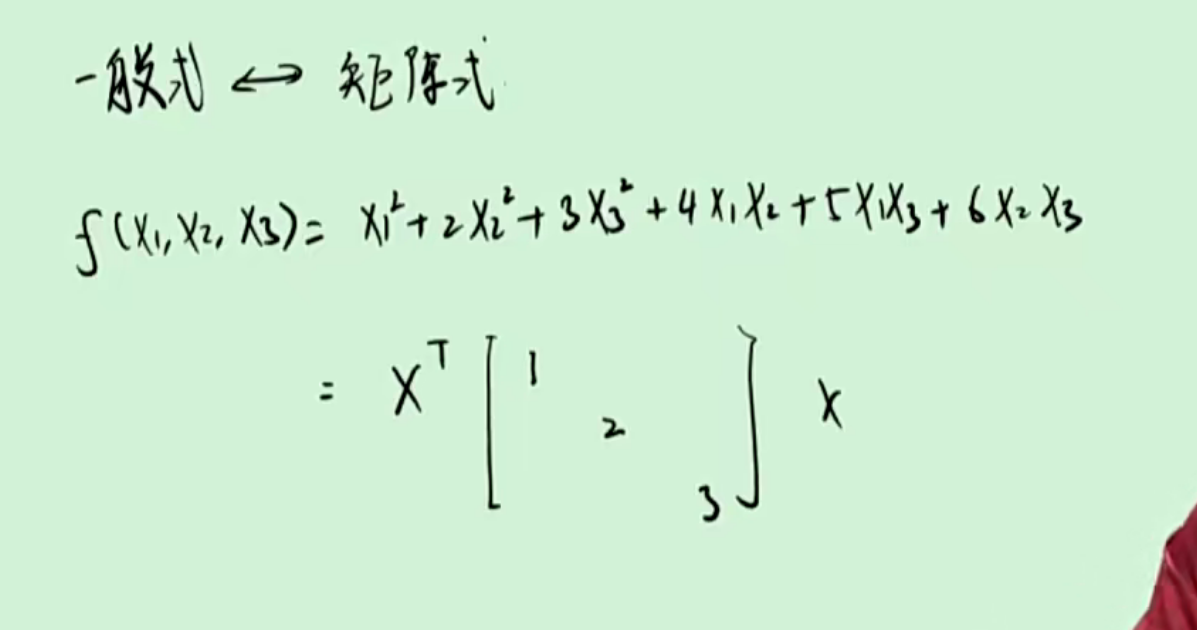 一般式 ↔ 矩阵式
f(x₁, x₂, x₃) = x₁² + 2x₂² + 3x₃² + 4x₁x₂ + 5x₁x₃ + 6x₂x₃
= x^T [ 1
2
3 ] x